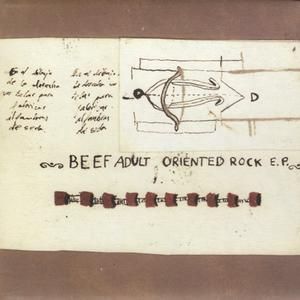 En el dibujo
de la derecha
para
fabricar
alfombras
de seda.
En el dibujo
para
fabricar
alfombras
de seda
D
BEEF ADULT ORIENTED ROCK E.P.